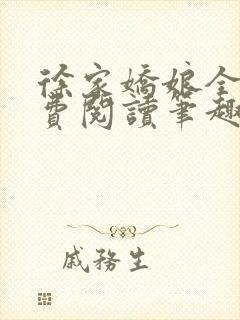 徐家嬌娘全
費閱讀筆趣
戚務生